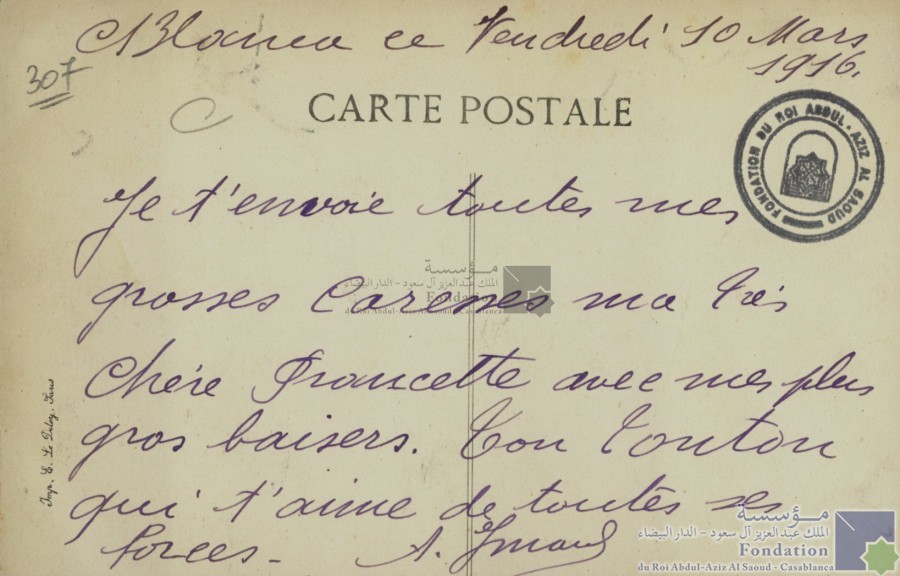 CBlanca ce Vendredi 10 Mars
1916.
307
CARTE POSTALE
FONDATION DU ROI ABDUL-AZIZ AL SAOUD
Je t'envoie toutes mes
مؤسسة
الملك عبد العزيز آل سعود - الدار البيضاء
Fondation
du Roi Abdul-Aziz Al Saoud - Casablanca
grosses Caresses ma très
Chère Francette avec mes plus
gros baisers. Ton Tonton
qui t'aime de toutes ses
forces - A.
Imp. E. Le Deley, Paris
مؤسسة
الملك عبد العزيز آل سعود - الدار البيضاء
Fondation
du Roi Abdul-Aziz Al Saoud - Casablanca